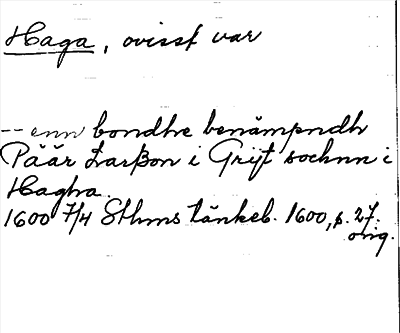 Haga, ovisst var
-- enn bondhe benämpndh
Päär Larßon i Gryt sochnn i
Hagha.
1600 7/4 Sthms tänkeb. 1600, s. 27.
orig.